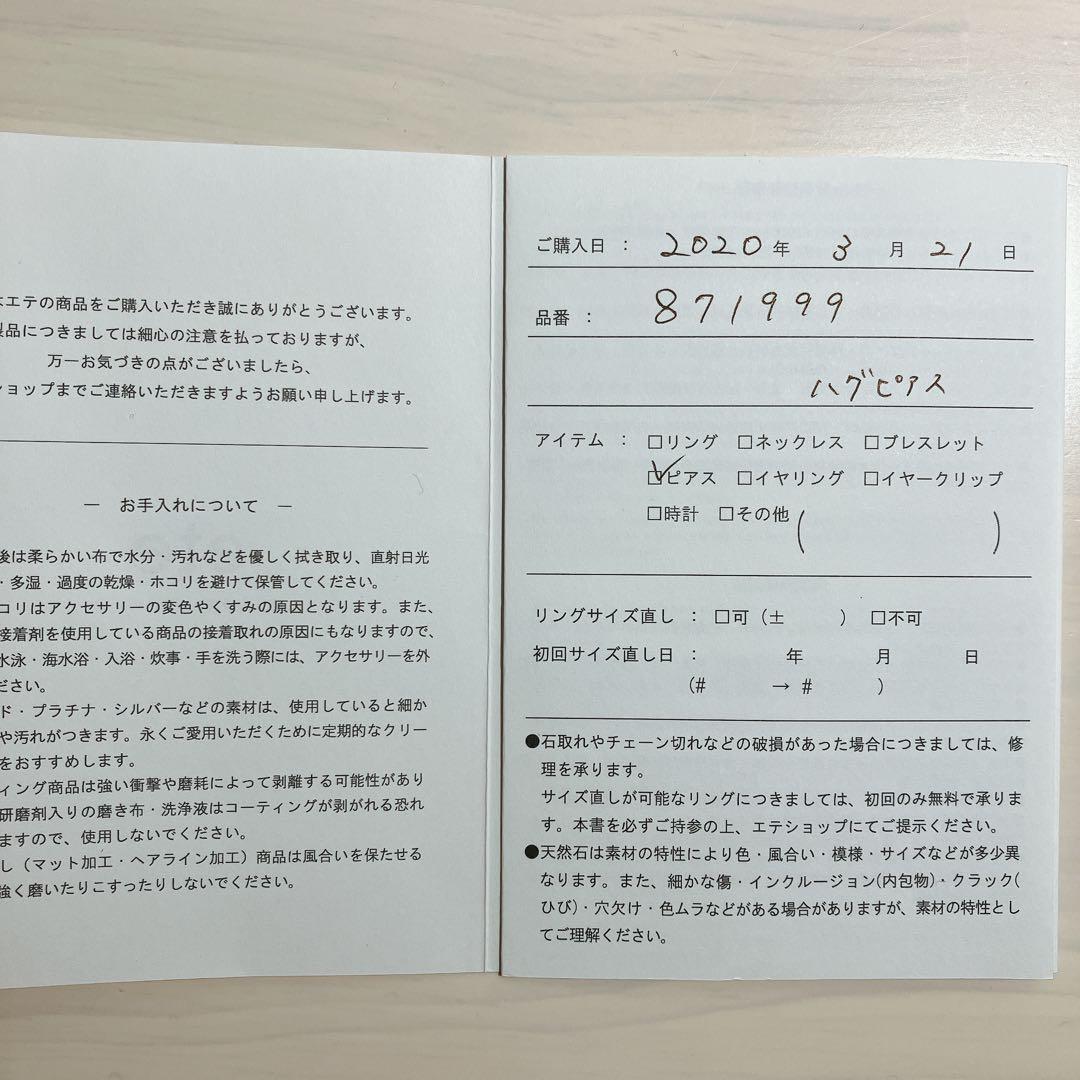 エテの商品をご購入いただき誠にありがとうございます。
製品につきましては細心の注意を払っておりますが、
万一お気づきの点がございましたら、
ショップまでご連絡いただきますようお願い申し上げます。
― お手入れについて ―
後は柔らかい布で水分・汚れなどを優しく拭き取り、直射日光
・多湿・過度の乾燥・ホコリを避けて保管してください。
コリはアクセサリーの変色やくすみの原因となります。また、
接着剤を使用している商品の接着取れの原因にもなりますので、
水泳・海水浴・入浴・炊事・手を洗う際には、アクセサリーを外
ださい。
ド・プラチナ・シルバーなどの素材は、使用していると細か
や汚れがつきます。永くご愛用いただくために定期的なクリー
をおすすめします。
ィング商品は強い衝撃や磨耗によって剥離する可能性があり
研磨剤入りの磨き布・洗浄液はコーティングが剥がれる恐れ
ますので、使用しないでください。
し（マット加工・ヘアライン加工）商品は風合いを保たせる
強く磨いたりこすったりしないでください。
ご購入日 ： 2020 年 3 月 21 日
品番 ： 871999
ハグピアス
アイテム ： □リング □ネックレス □ブレスレット
☑ピアス □イヤリング □イヤークリップ
□時計 □その他 ( )
リングサイズ直し ： □可（± ） □不可
初回サイズ直し日 ： 年 月 日
(# → # )
●石取れやチェーン切れなどの破損があった場合につきましては、修
理を承ります。
サイズ直しが可能なリングにつきましては、初回のみ無料で承りま
す。本書を必ずご持参の上、エテショップにてご提示ください。
●天然石は素材の特性により色・風合い・模様・サイズなどが多少異
なります。また、細かな傷・インクルージョン(内包物)・クラック(
ひび)・穴欠け・色ムラなどがある場合がありますが、素材の特性とし
てご理解ください。